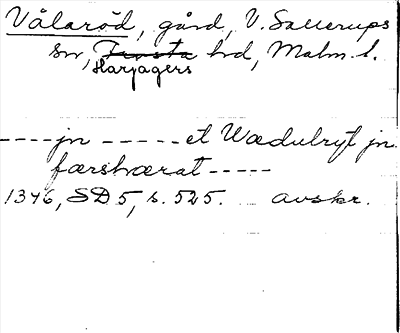 Vålaröd, gård, V. Sallerups
sn, Frosta hd, Malm. l.
Harjagers
---- jn ----- et Wædulryt jn
færshærat -----
1346, SD 5, s. 525. avskr.